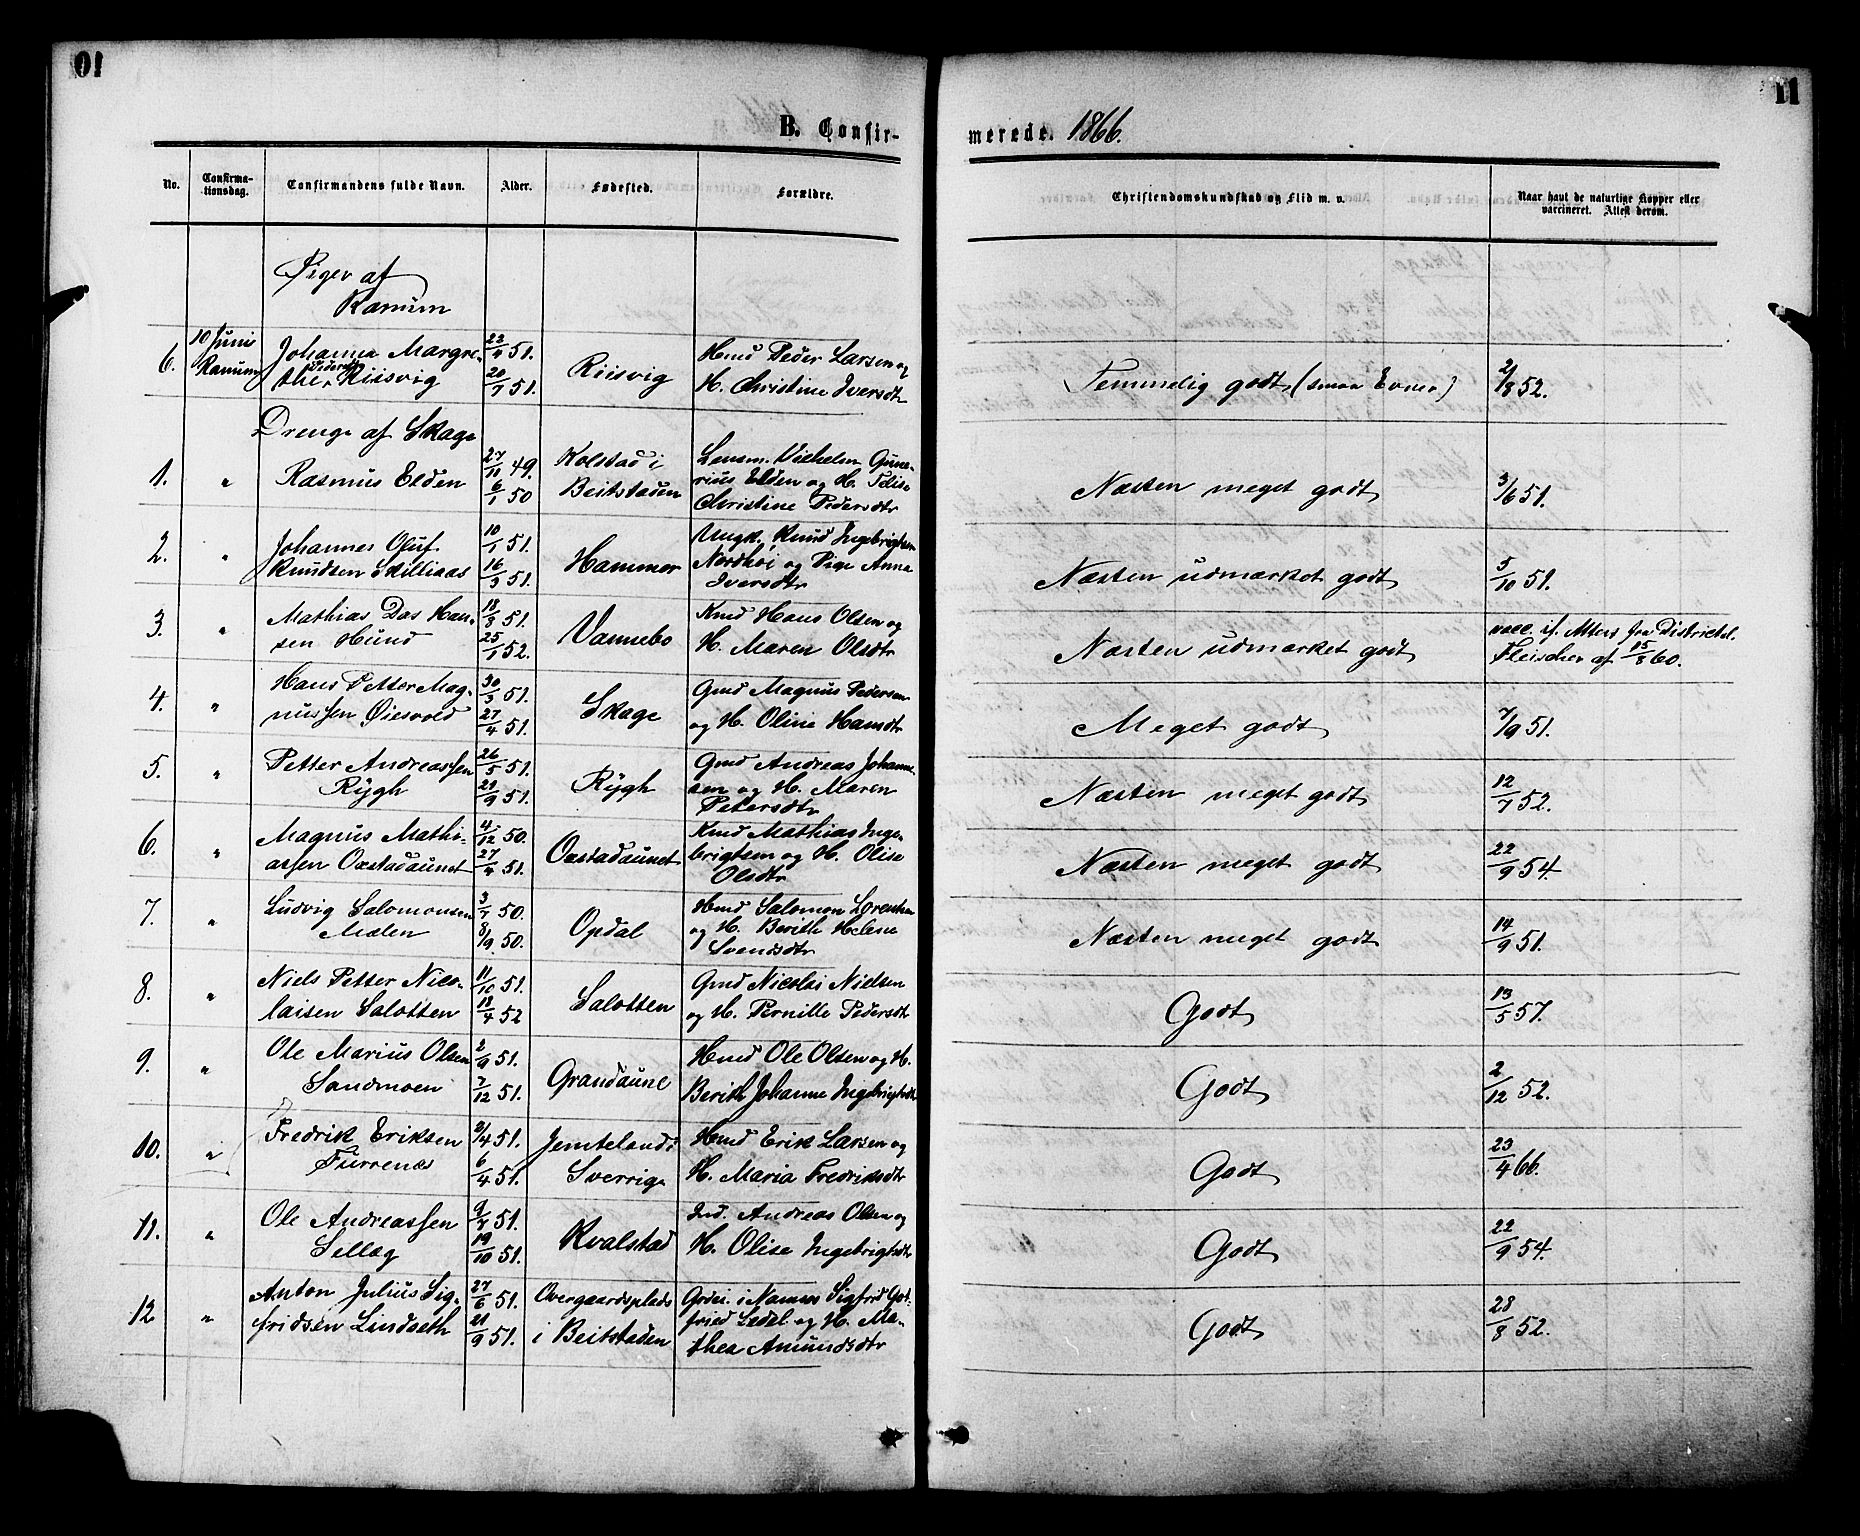 10
11
B. Confir-
merede. 1866.
No.
Confirma-
tionsdag.
Confirmandens fulde Navn.
Alder.
Fødested.
Forældre.
Christendomskundskab og Flid m. v.
Naar havt de naturlige Kopper eller
vaccineret. Attest derom.
Piger af
Ranum
6.
10 Juni
Ranum
Johanna Margre-
Pedersdtr
the Riisvig
22/4 51.
20/7 51.
Riisvig
Hmd Peder Larsen og
H. Christine Iversdtr
Temmelig godt, (smaa Evner)
2/8 52.
Drenge af Skage
1.
"
Rasmus Elden
27/10 49.
6/1 50
Kolstad i
Beitstaden
Lensm. Vilhelm Gune-
rius Elden og H. Felise
Christine Pedersdtr
Næsten meget godt,
3/6 51.
2.
"
Johannes Oluf
Knudsen Skilliaas
10/1 51.
16/3 51.
Hammer
Ungk. Knud Ingebrigtsen
Nordhøi og Pige Anna
Iversdtr
Næsten udmærket godt,
5/10 51.
3.
"
Mathias Das Han-
sen Hund
18/3 51.
25/1 52.
Vannebo
Kmd Hans Olsen og
H. Maren Olsdtr
Næsten udmærket godt,
vacc. if. Attest fra Districtsl.
Fleischer af 15/8 60.
4.
"
Hans Petter Mag-
nussen Øiesvold
30/3 51.
27/4 51.
Skage
Gmd Magnus Pedersen
og H. Oline Hansdtr
Meget godt,
7/9 51.
5.
"
Petter Andreassen
Rygh
26/5 51.
21/9 51.
Rygh
Gmd Andreas Johanne-
sen og H. Maren
Petersdtr
Næsten meget godt,
12/7 52.
6.
"
Magnus Mathi-
assen Oxstadaunet
4/12 50.
27/4 51.
Oxstadaunet
Kmd Mathias Inge-
brigtsen og H. Olise
Olsdtr
Næsten meget godt,
22/9 54.
7.
"
Ludvig Salomonsen
Mælen
3/7 50.
8/9 50.
Opdal
Hmd Salomon Lorentsen
og H. Berith Helene
Svendsdtr
Næsten meget godt,
14/9 51.
8.
"
Niels Petter Nico-
laisen Salotten
11/10 51.
18/4 52
Salotten
Gmd Nicolai Nielsen
og H. Pernille Pedersdtr
Godt,
13/5 57.
9.
"
Ole Marius Olsen
Sandmoen
2/9 51.
7/12 51.
Grandaune
Hmd Ole Olsen og H.
Berith Johanne Ingebrigtsdtr
Godt,
2/12 52.
10.
"
Fredrik Eriksen
Furrenæs
2/4 51.
6/4 51.
Jemteland i
Sverrige
Hmd Erik Larsen og
H. Maria Fredriksdtr
Godt,
23/4 66.
11.
"
Ole Andreassen
Sellæg
9/7 51.
19/10 51.
Kvalstad
Ind. Andreas Olsen og
H. Olise Ingebrigtsdtr
Godt,
22/9 54.
12
"
Anton Julius Sig-
fridsen Lindseth
27/6 51.
21/9 51.
Overgaardsplads
i Beitstaden
i Namsos Sigfrid Got-
fried H. Ma-
thea Amundsdtr
Godt,
28/8 52.